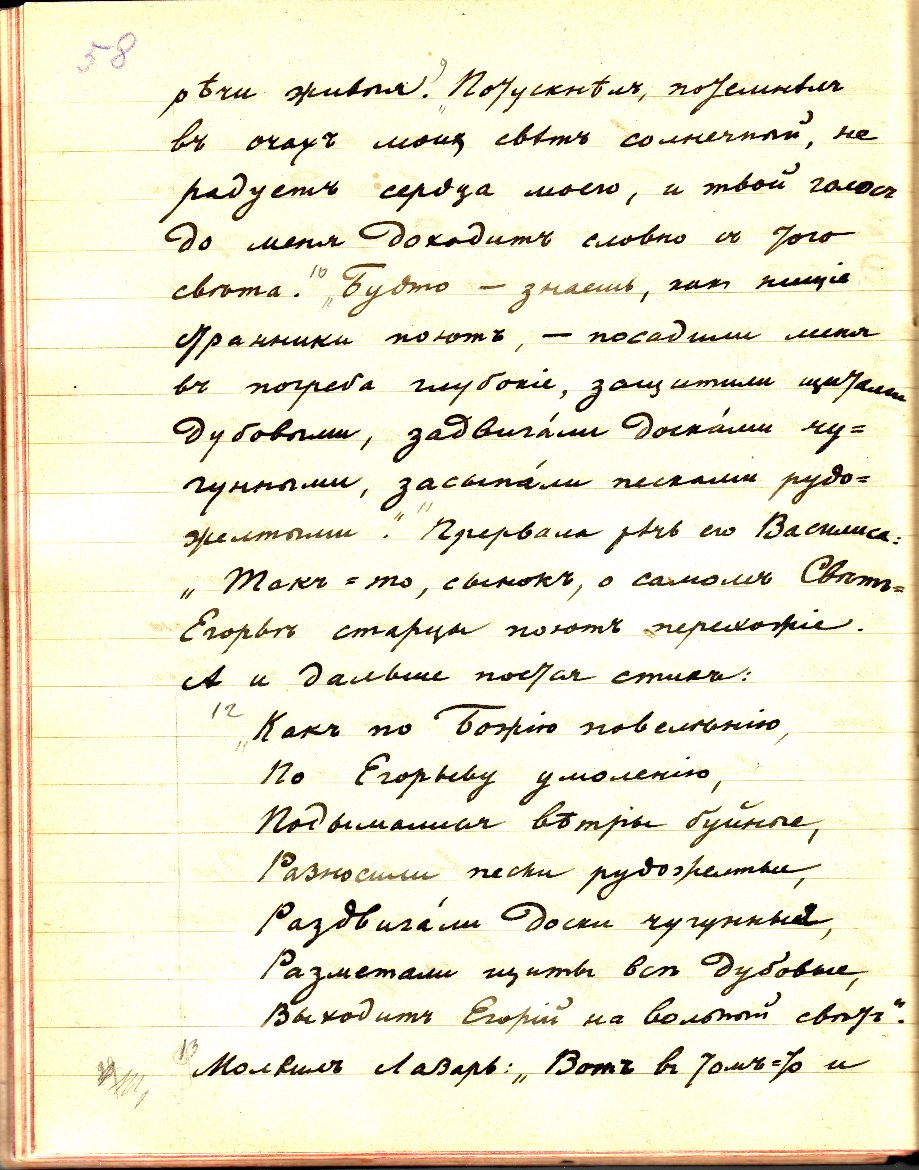 58
рѣчи живыя. 9 „Потускнѣлъ, потемнѣлъ
въ очахъ моихъ свѣтъ солнечный, не
радуетъ сердца моего, и твой голосъ
до меня доходитъ словно съ того
свѣта. 10 „Будто — знаешь, какъ нищіе
странники поютъ, — посадили меня
въ погреба глубокіе, защитили щитами
дубовыми, задвига́ли доска́ми чу=
гунными, засыпа́ли песками рудо=
желтыми.“ 11 Прервала рѣчь его Василиса:
„Такъ=то, сынокъ, о самомъ Свѣтъ=
Егорьѣ старцы поютъ перехожіе.
А и дальше поется стихъ:
12 „Какъ по Божію повелѣнію,
По Егорьеву умоленію,
Подымалися вѣтры буйные,
Разносили пески рудожелтые,
Раздвига́ли доски чугунныя,
Разметали щиты всѣ дубовые,
Выходитъ Егорій на вольный свѣтъ“.
13 Молвилъ Лазарь: „Вотъ въ томъ=то и